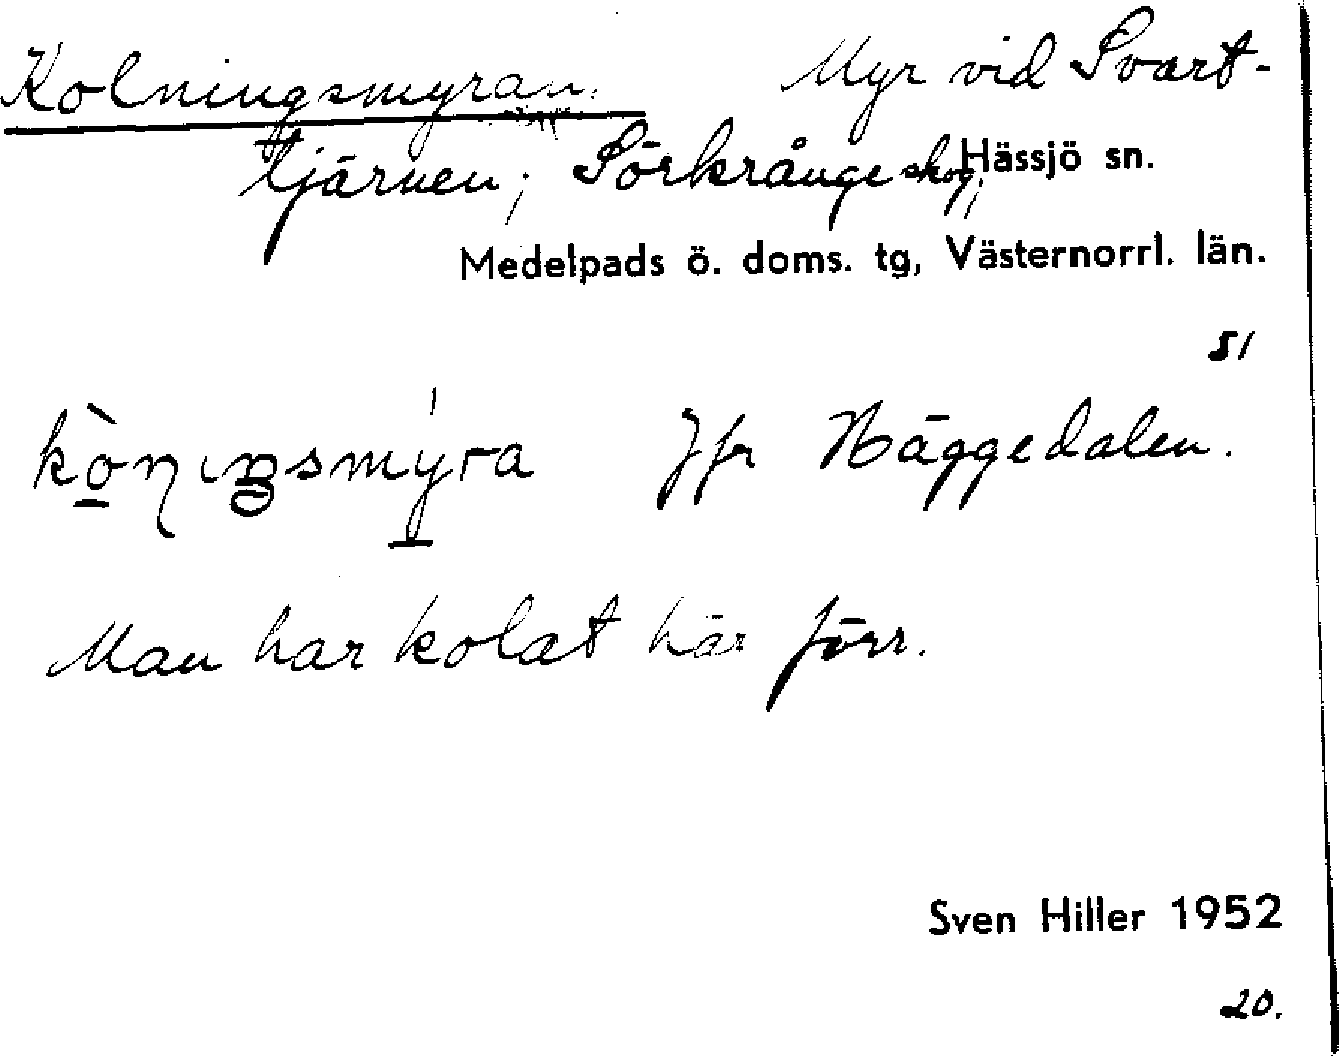 Kolningsmyran. Myr vid Svart-
tjärnen; Sörkrånge skog, Hässjö sn.
Medelpads ö. doms. tg, Västernorrl. län.
51
Jfr Häggedalen.
Man har kolat här förr.
Sven Hiller 1952
20.